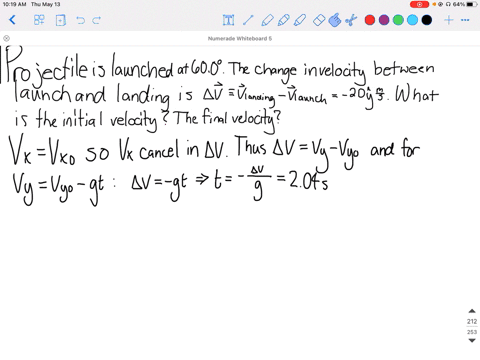 10:19 AM Thu May 13
64%
Numerade Whiteboard 5
Projectile is launched at 60.0°. The change in velocity between
launch and landing is ΔV⃗ ≡ V⃗landing - V⃗launch = -20ŷ m/s. What
is the initial velocity? The final velocity?
Vx = Vx0 so Vx cancel in ΔV. Thus ΔV = Vy - Vy0 and for
Vy = Vy0 - gt : ΔV = -gt ⇒ t = - ΔV/g = 2.04s
212
253